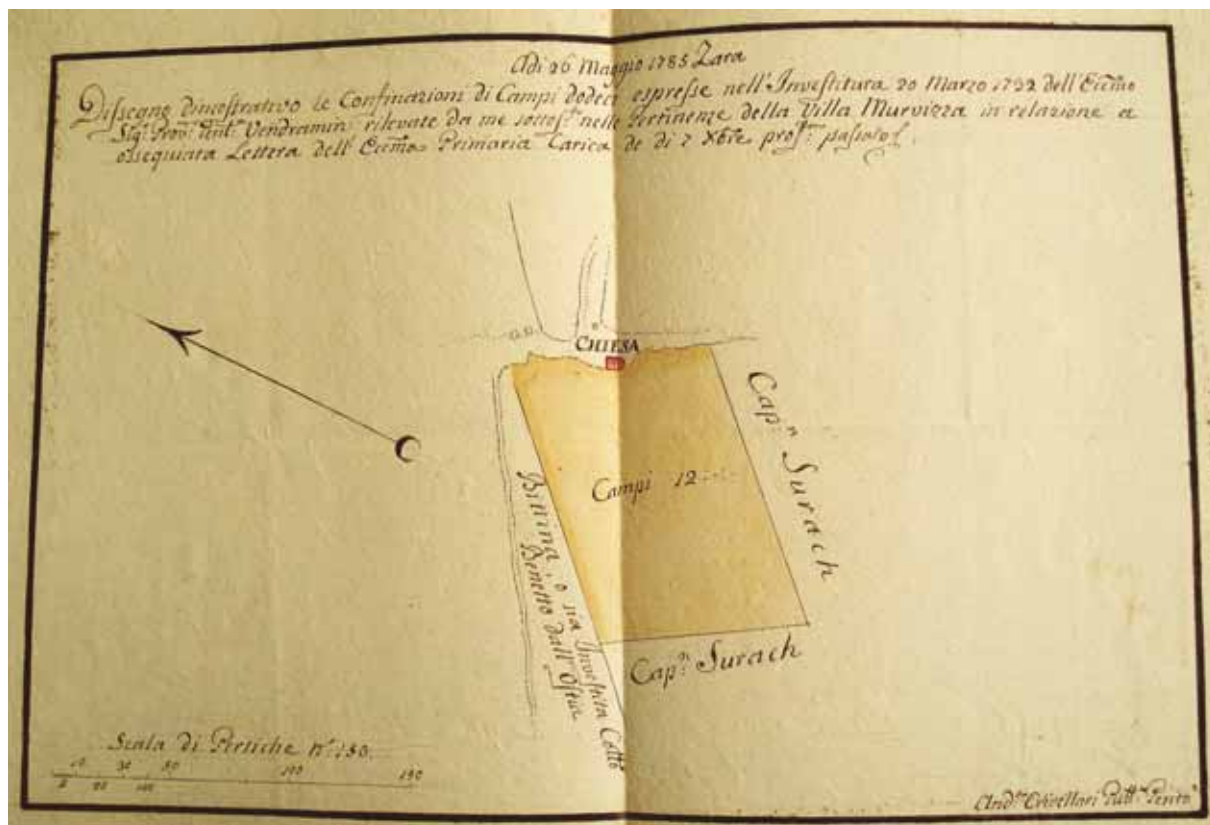 Adi 26 Maggio 1785 Zara
Dissegno Dimostrativo le Confinazioni di Campi dodeci espresse nell'Investitura 20 Marzo 1722 dell'Eccmo
Sigr Provr Vendramin rilevate da me sottoṣto nelle Pertinenze della Villa Murvizza in relazione a
ossequiata Lettera dell'Eccma Primaria Carica de di 7 Xbre pross. passato
CHIESA
Capn Surach
Campi 12
Bittina, o sia Investita Catto
Benetto Dall'Ostia
Capn Surach
Scala di Pertiche no 150.
10 30 50 100 150
5 20 40
Andra Crivellari Pubb. Perito